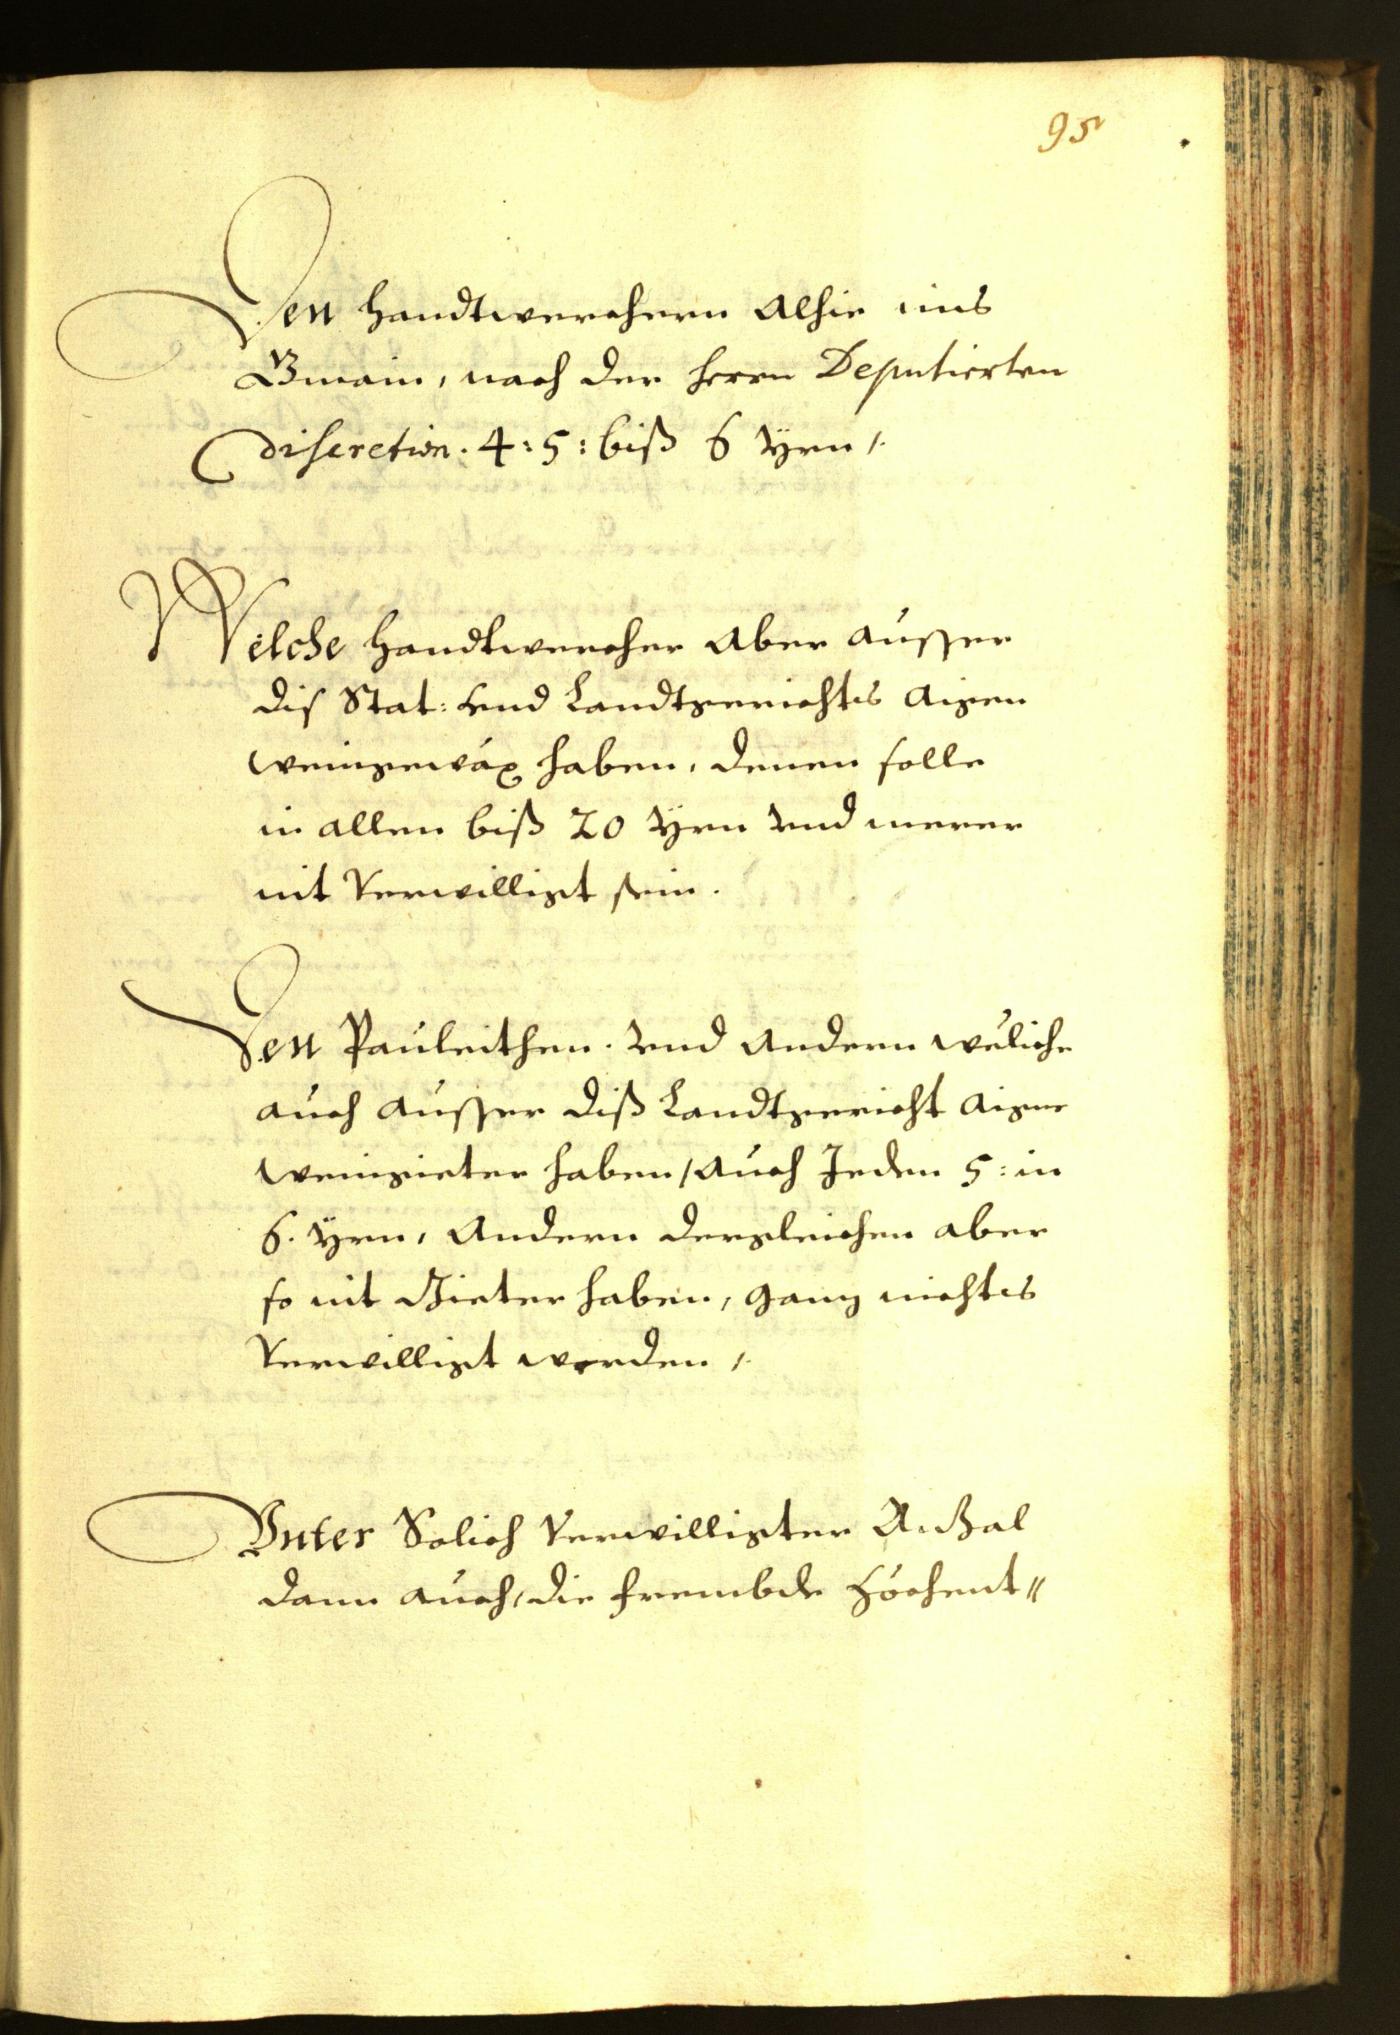 95
Den Handtwerchern Alhie ins
Gmain, nach der herrn Deputierten
discretion. 4: 5: biß 6 Yrn /.
Welche Handtwercher Aber ausser
dis Stat: vnd Landtgerichts Aigen
weingewäx haben, denen solle
in allen biß 20 Yrn vnd merer
nit Verwilligt sein.
Den Pauleithen. vnd Andern weliche
auch ausser diß Landtgericht Aigne
weingieter haben / Auch Jeden 5: in
6. Yrn, Andern dergleichen aber
so nit Gieter haben, ganz nichts
Verwilligt worden /.
Vnter Solich Verwilligter Anzal
dann auch, die frembde Hochent〃